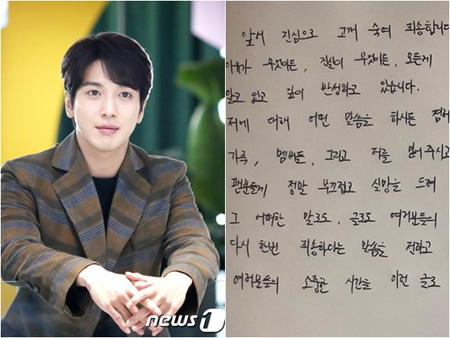 앞서 진심으로 고개 숙여 죄송합니다
이유가 무엇이든, 진실이 무엇이든, 모든게
알고 있고 깊이 반성하고 있습니다.
저에 대해 어떤 말씀을 하시든
가족, 멤버들, 그리고 저를 믿어 주시고
팬분들께 정말 부끄럽고 실망을 드려
그 어떠한 말로도, 글로도 여러분들의
다시 한번 죄송하다는 말씀을 전하고
여러분들의 소중한 시간을 이런 글로
news1